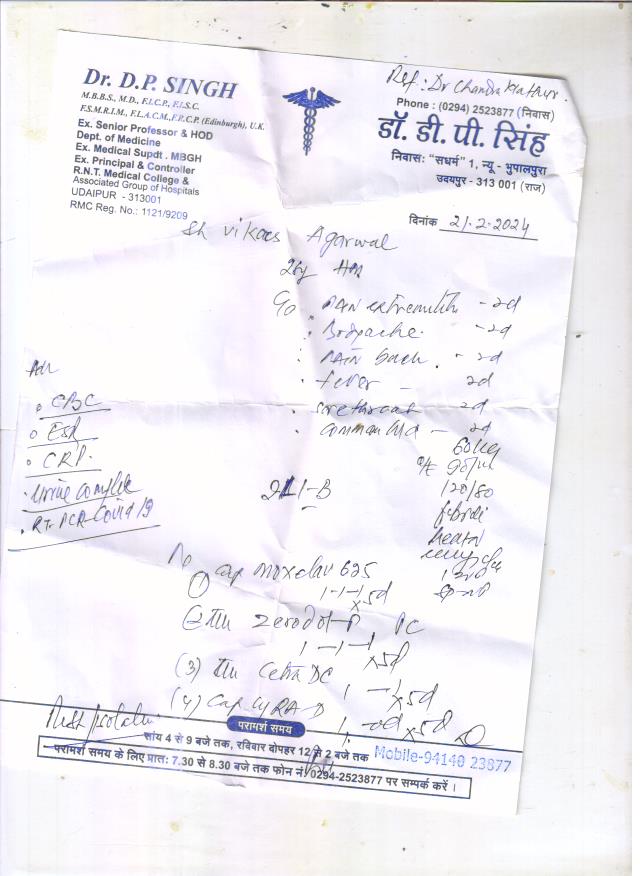 Ref: Dr Chandra Mathur.
Dr. D.P. SINGH
M.B.B.S., M.D., F.I.C.P., F.I.S.C.
F.S.M.R.I.M., F.I.,A.C.M.,F.R.C.P. (Edinburgh), U.K.
Ex. Senior Professor & HOD
Dept. of Medicine
Ex. Medical Supdt . MBGH
Ex. Principal & Controller
R.N.T. Medical College &
Associated Group of Hospitals
UDAIPUR - 313001
RMC Reg. No.: 1121/9209
Phone : (0294) 2523877 (निवास)
डॉ. डी. पी. सिंह
निवास: "सधर्म" 1, न्यू - भुपालपुरा
उदयपुर - 313 001 (राज)
दिनांक 21.2.2024
Sh vikaes Agarwal
26y
PAIN extremities - 2d
Bodyache. - 2d
PAIN back. - 2d
fever - 2d
sorethroat 2d
common cold - 2d
60kg
120/80
Adv
CBC
ESR
CRP.
urine complete
RT-PCR-Covid 19
① Cap moxclav 625
1-1-1 x5d
② Tab zerodol-P PC
1-1-1 x5d
(3) Tab Cetra DC
1-1 x5d
(4) Cap CYRA D
1-od x5d
परामर्श समय
सांय 4 से 9 बजे तक, रविवार दोपहर 12 से 2 बजे तक
Mobile-94140 23877
परामर्श समय के लिए प्रात: 7.30 से 8.30 बजे तक फोन नं. 0294-2523877 पर सम्पर्क करें ।